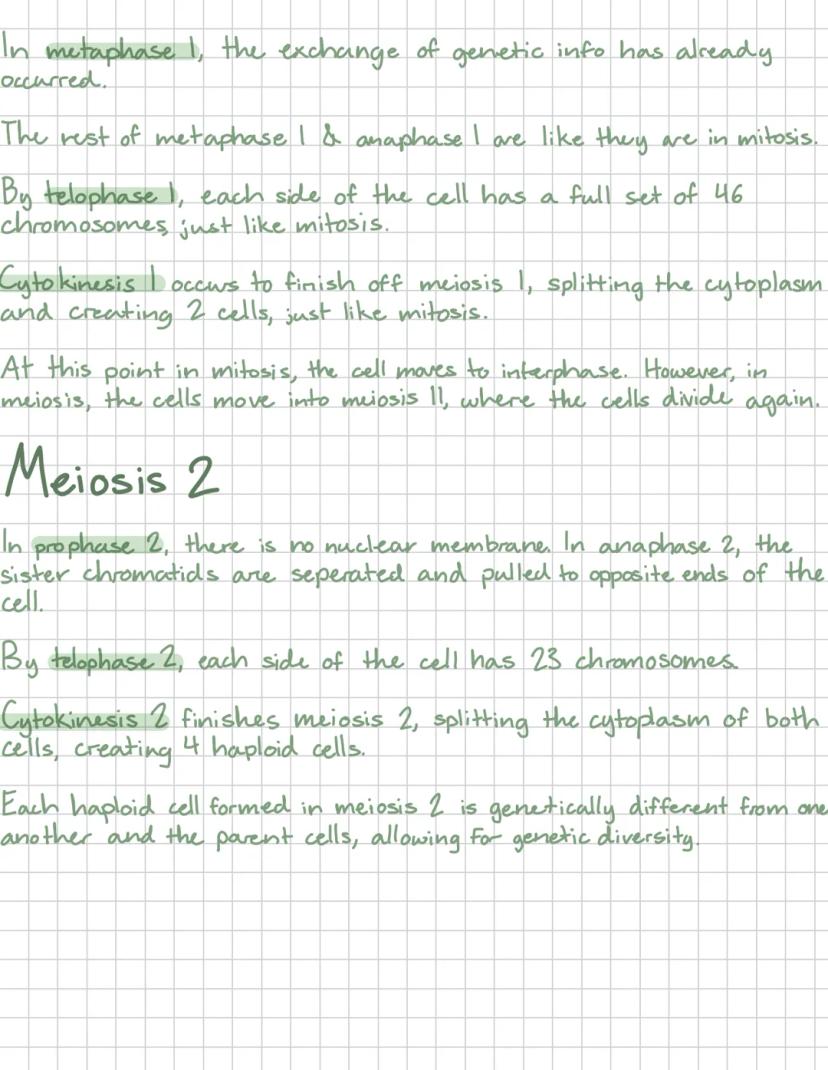 In metaphase 1, the exchange of genetic info has already
occurred.
The rest of metaphase 1 & anaphase 1 are like they are in mitosis.
By telophase 1, each side of the cell has a full set of 46
chromosomes, just like mitosis.
Cytokinesis 1 occurs to finish off meiosis 1, splitting the cytoplasm
and creating 2 cells, just like mitosis.
At this point in mitosis, the cell moves to interphase. However, in
meiosis, the cells move into meiosis 11, where the cells divide again.
Meiosis 2
In prophase 2, there is no nuclear membrane. In anaphase 2, the
sister chromatids are seperated and pulled to opposite ends of the
cell.
By telophase 2, each side of the cell has 23 chromosomes.
Cytokinesis 2 finishes meiosis 2, splitting the cytoplasm of both
cells, creating 4 haploid cells.
Each haploid cell formed in meiosis 2 is genetically different from one
another and the parent cells, allowing for genetic diversity.